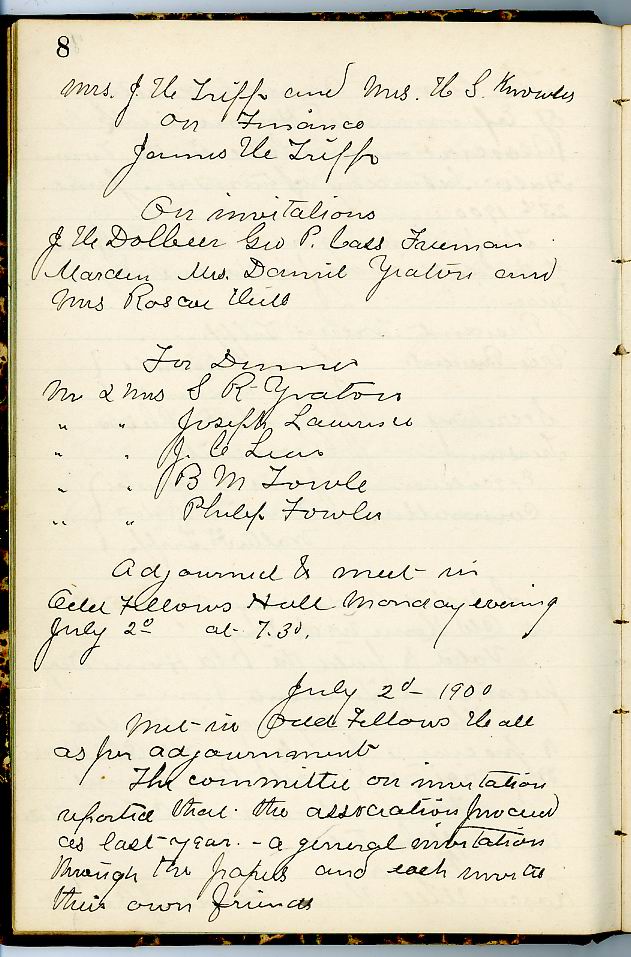 8
Mrs. J. H. Tripp and Mrs. H. S. Knowles
On Finance
James H. Tripp
On invitations
J H Dolbeer Geo P. Cass Freeman
Marden Mrs. Daniel Yeaton and
Mrs Roscoe Hill
For Dinner
Mr & Mrs S R Yeaton
" " Joseph Lawrence
" " J. C Lear
" " B M Towle
" " Philip Fowler
Adjourned to meet in
Odd Fellows Hall Monday evening
July 2d at 7.30.
July 2d 1900
Met in Odd Fellows Hall
as per adjournment
The committee on invitation
reported that the association proceed
as last year. - a general invitation
through the papers and each invite
their own friends